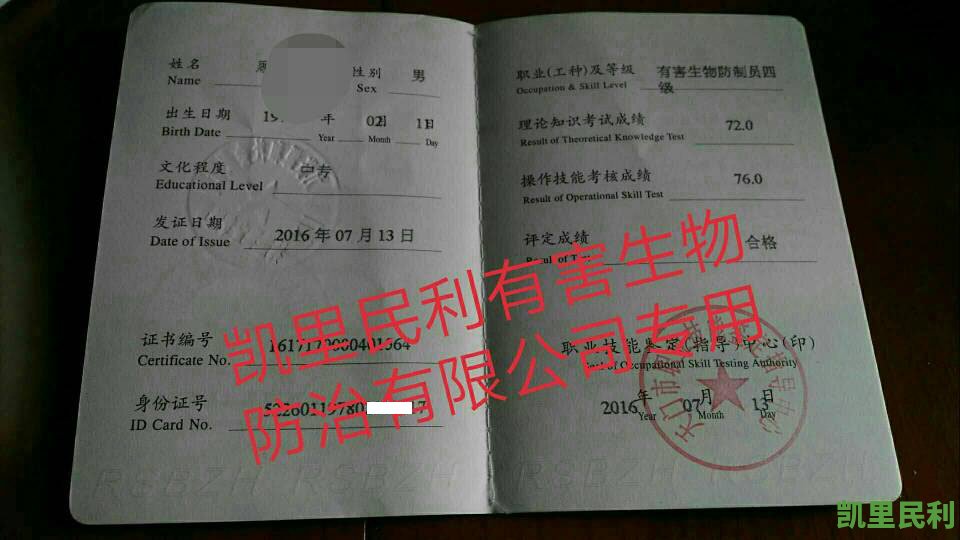 姓名
Name
性别 男
Sex
出生日期 年 02月 11日
Birth Date Year Month Day
文化程度 中专
Educational Level
发证日期 2016 年 07 月 13 日
Date of Issue
证书编号
Certificate No.
身份证号
ID Card No.
职业(工种)及等级 有害生物防制员四
Occupation & Skill Level 级
理论知识考试成绩 72.0
Result of Theoretical Knowledge Test
操作技能考核成绩 76.0
Result of Operational Skill Test
评定成绩 合格
Result of Test
职业技能鉴定(指导)中心(印)
of Occupational Skill Testing Authority
2016 年 07 月 13 日
Year Month Day
凯里民利有害生物
防治有限公司专用
RSBZH RSBZH RSBZH RSBZH
凯里民利